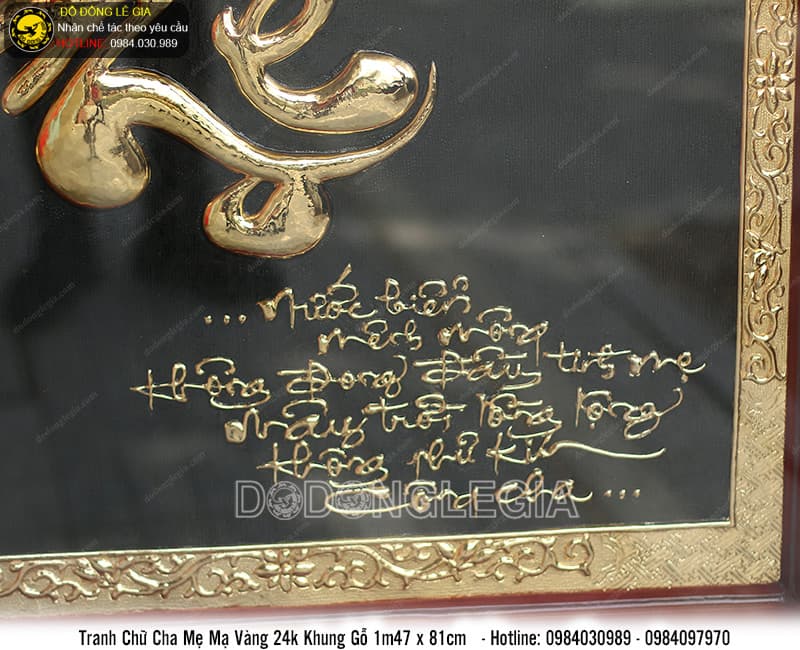 ĐỒ ĐỒNG LÊ GIA
Nhân chế tác theo yêu cầu
HOTLINE: 0984.030.989
... Nước biển
mênh mông
không đong đầy tình mẹ
Mây trời lồng lộng
không phủ kín
công cha ...
DODONGLEGIA
Tranh Chữ Cha Mẹ Mạ Vàng 24k Khung Gỗ 1m47 x 81cm - Hotline: 0984030989 - 0984097970